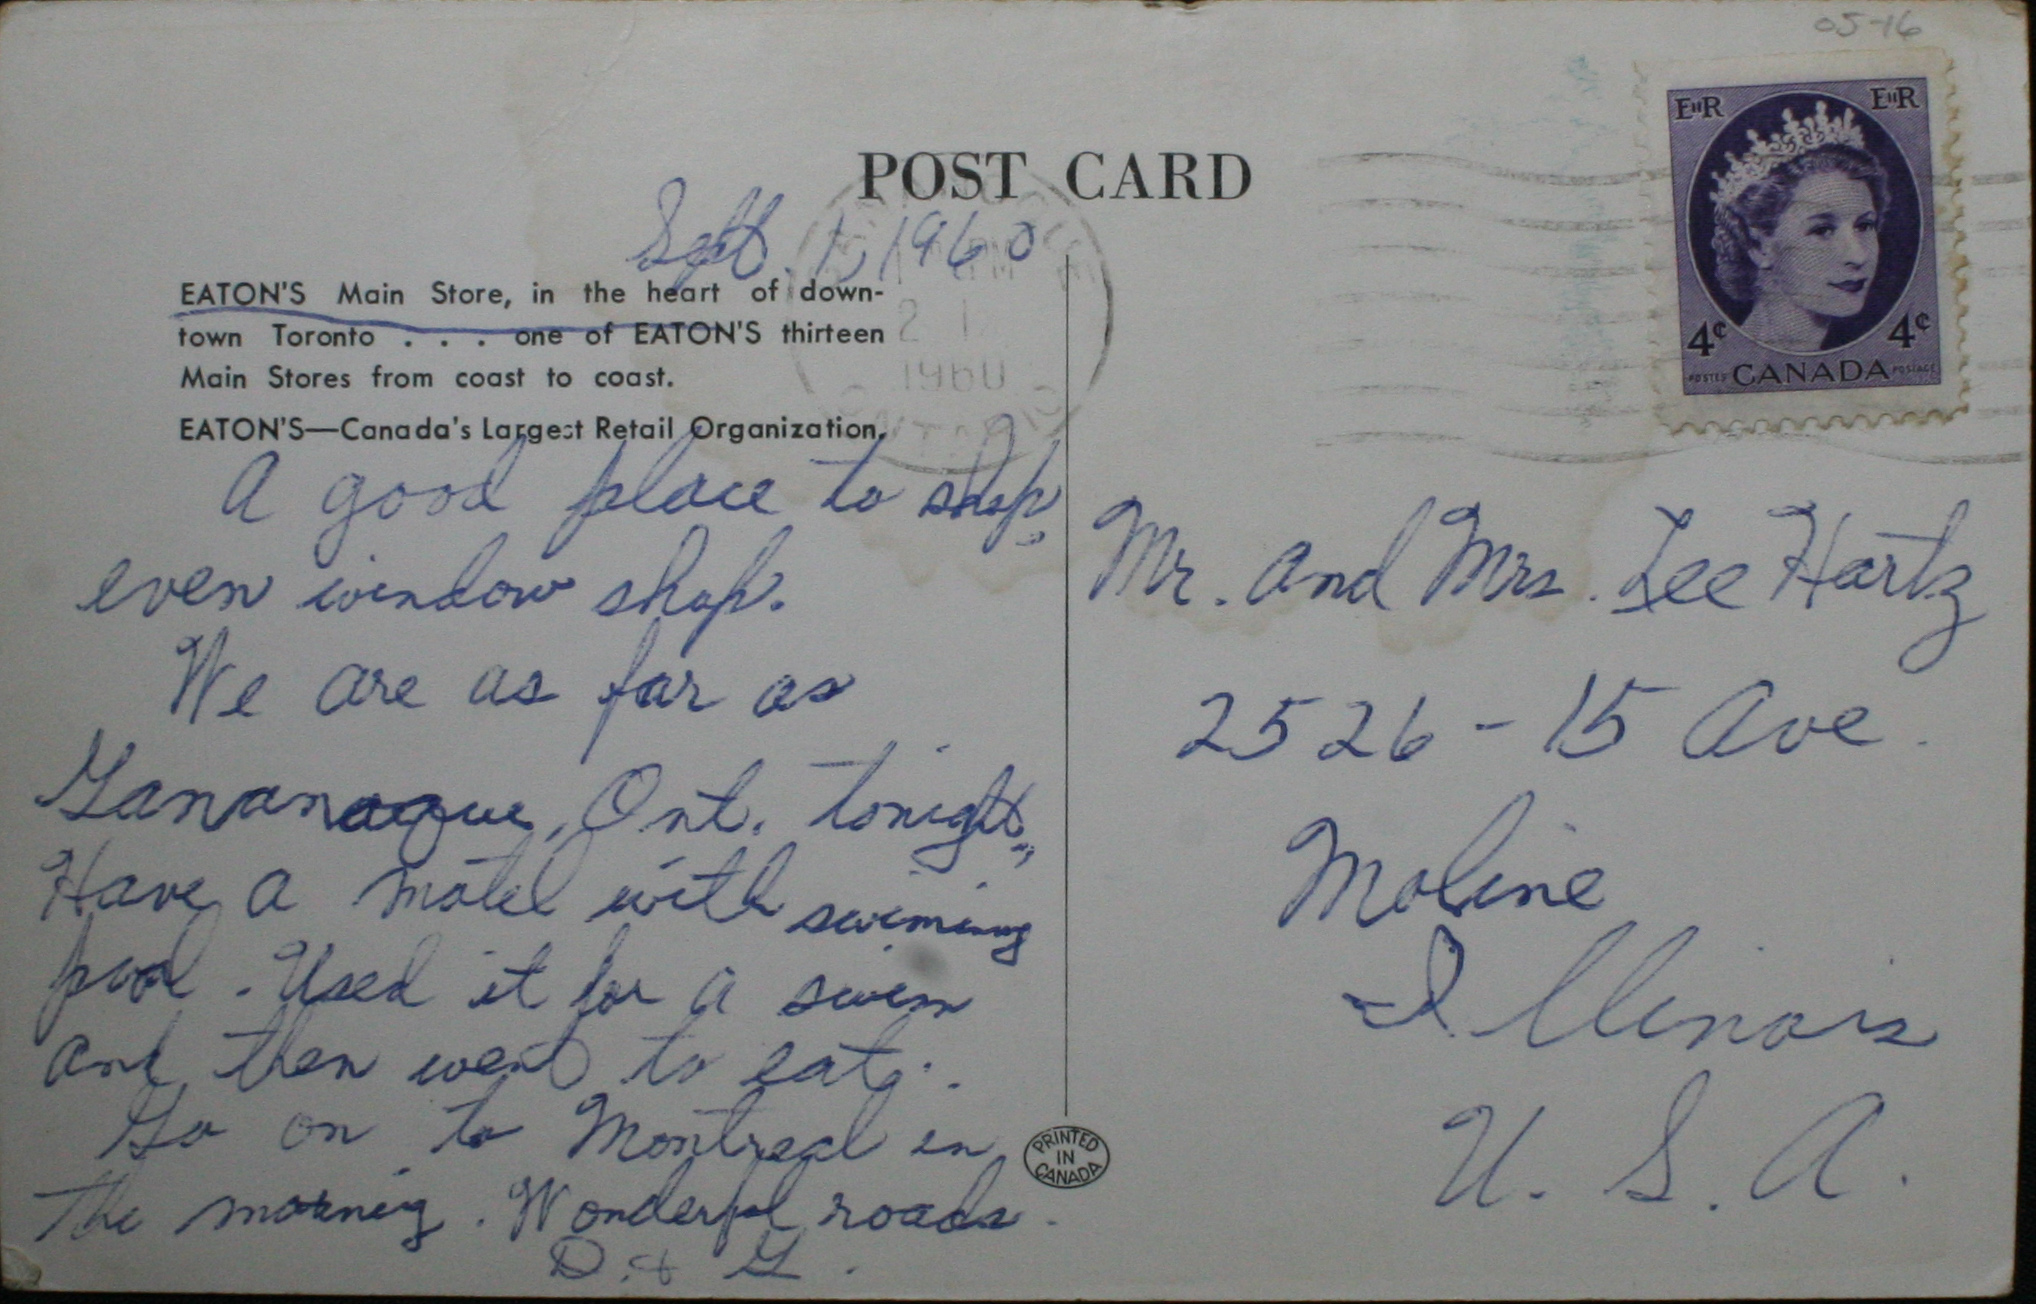 05-16
EIIR EIIR
4¢ 4¢
POSTES CANADA POSTAGE
POST CARD
Sept. 1, 1960
PM
2 IX
1960
ONTARIO
EATON'S Main Store, in the heart of down-
town Toronto . . . one of EATON'S thirteen
Main Stores from coast to coast.
EATON'S—Canada's Largest Retail Organization.
A good place to shop,
even window shop.
We are as far as
Gananoque, Ont. tonight.
Have a motel with swiming
pool. Used it for a swim
and then went to eat.
Go on to Montreal in
the morning. Wonderful roads.
D. & G.
Mr. and Mrs. Lee Hartz
2526 - 15 Ave.
Moline
Illinois
U. S. A.
PRINTED
IN
CANADA